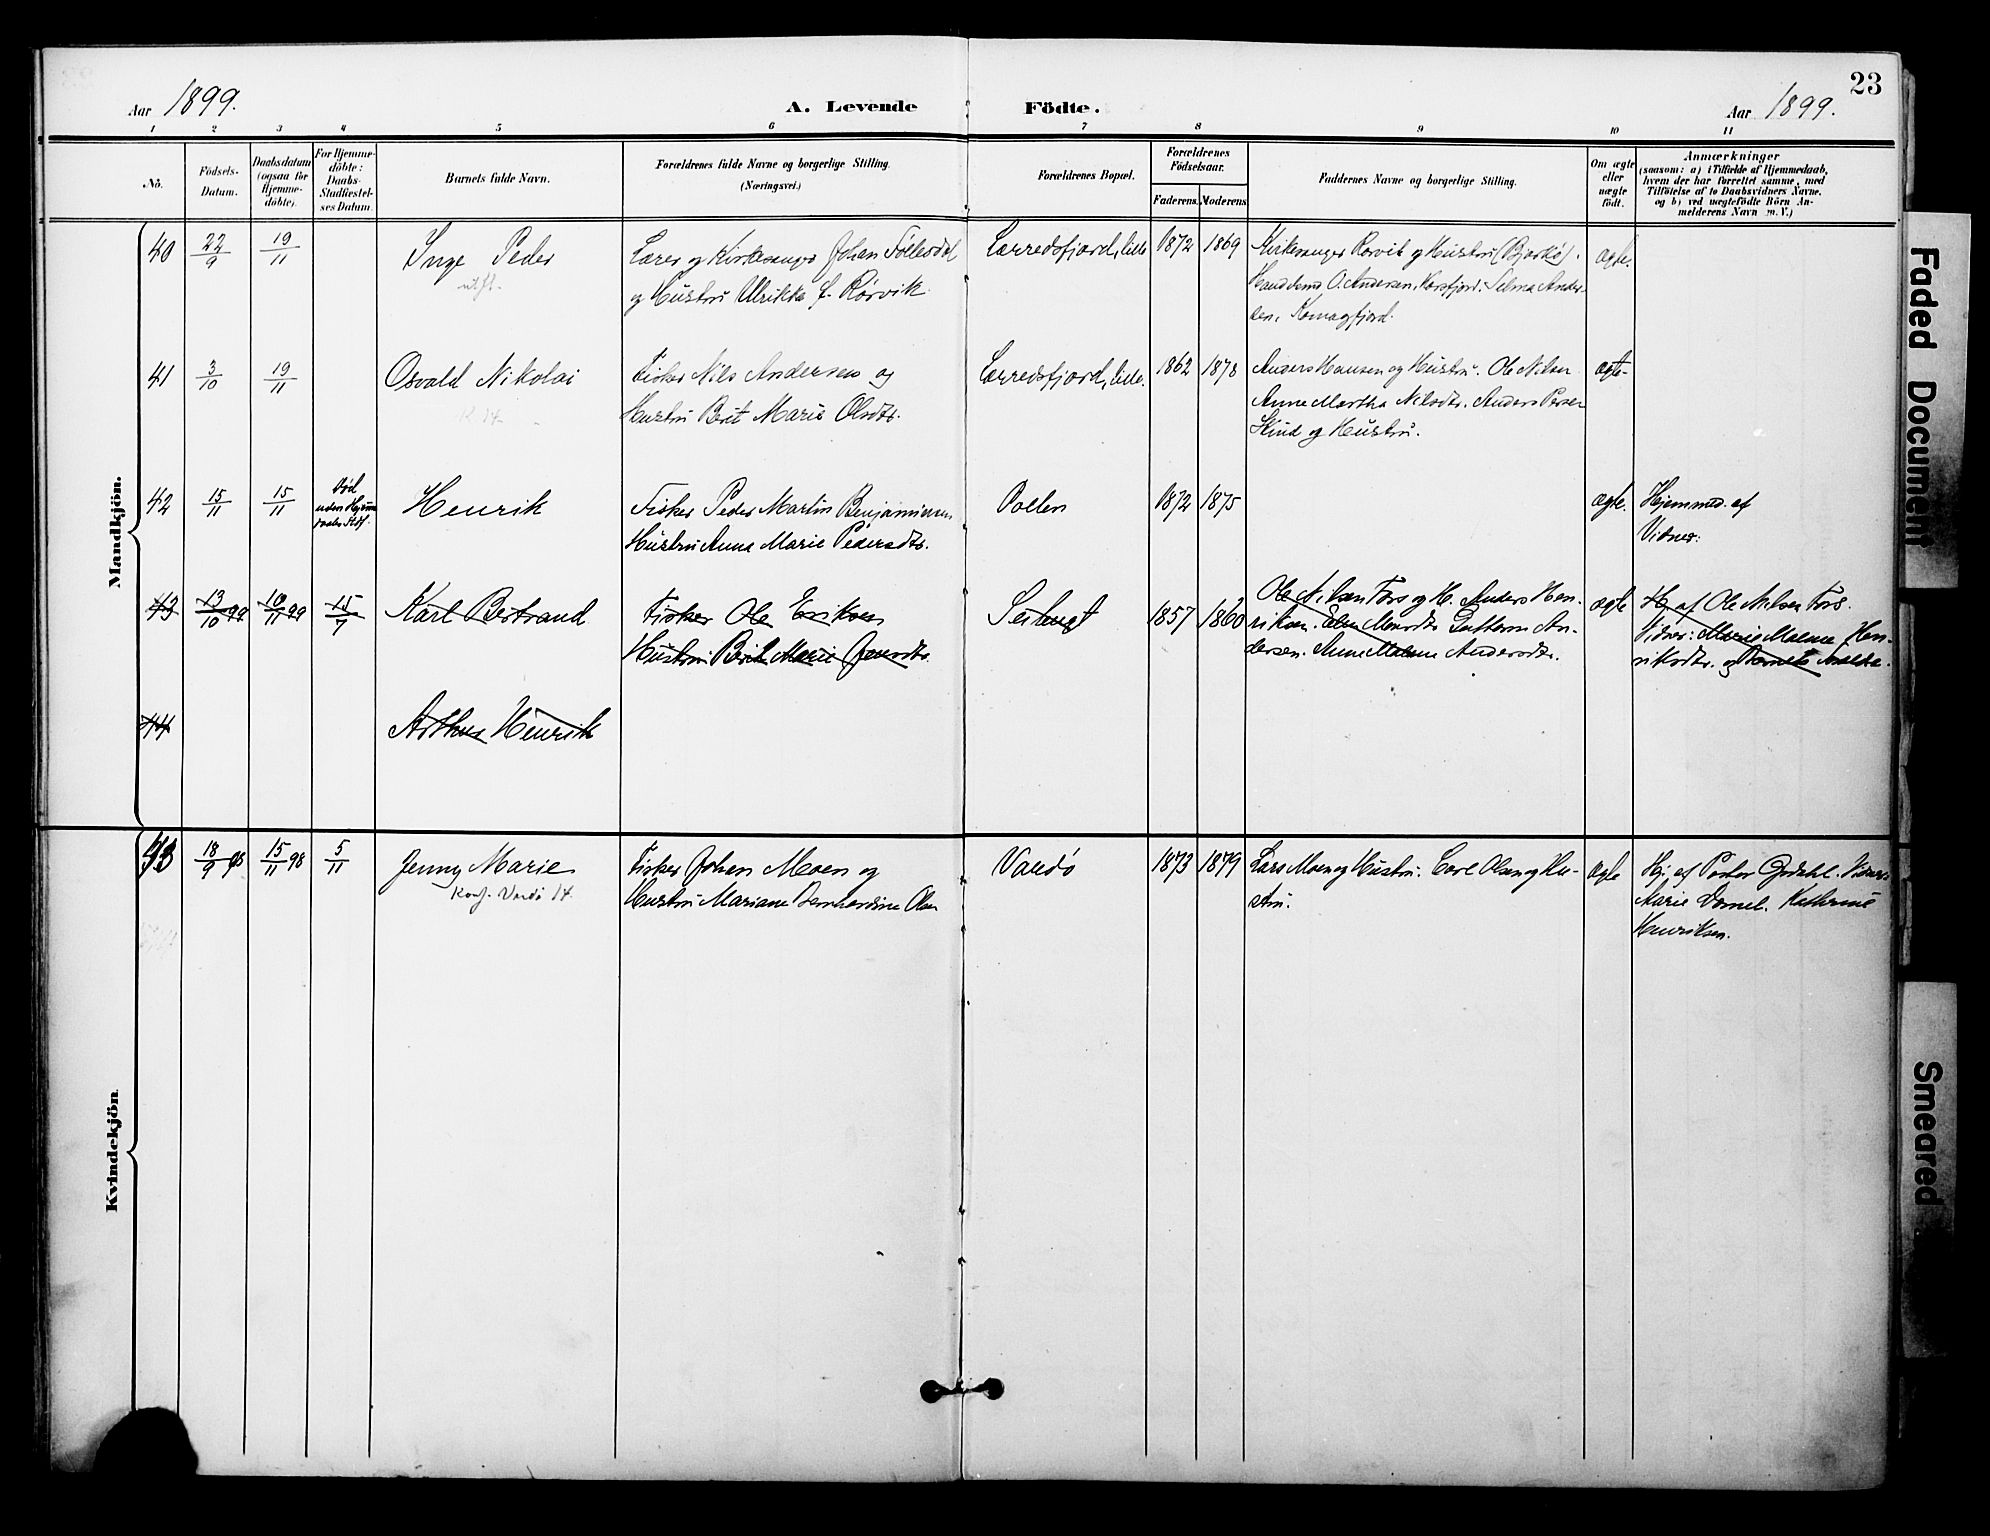 23
Aar 1899.
A. Levende Födte.
Aar 1899.
1 2 3 4 5 6 7 8 9 10 11
No.
Födsels-Datum.
Daabsdatum (ogsaa for Hjemme-döbte).
For Hjemme-döbte: Daabs-Stadfæstel-ses Datum.
Barnets fulde Navn.
Forældrenes fulde Navne og borgerlige Stilling.
(Næringsvei.)
Forældrenes Bopæl.
Forældrenes Födselsaar.
Faderens. Moderens
Faddernes Navne og borgerlige Stilling.
Om ægte eller uægte födt.
Anmærkninger
(saasom: a) i Tilfælde af Hjemmedaab,
hvem der har forrettet samme, med
Tilföielse af to Daabsvidners Navne,
og b) ved uægtefödte Börn An-
melderens Navn m. V.)
Mandkjön.
40 22/9 19/11 Inge Peder
Lærer og Kirkesanger Johan Follesdal
og Hustru Ulrikke f. Rørvik
Lerredsfjord, lille 1872 1869
Kirkesanger Rørvik og Hustru (Bjarkø).
O. Andersen, Korsfjord. Selma Ander-
sen, Komagfjord.
ægte.
41 3/10 19/11 Osvald Nikolai
Fisker Nils Andersen og
Hustru Berit Marie Olsdtr.
Lerredsfjord, lille. 1862 1878
Anders Hansen og Hustru. Ole Nilsen
Anne Martha Nilsdtr. Anders Persen
Skind og Hustru.
ægte
42 15/11 15/11 Død uden Hjemmedaabs Stdf.
Henrik
Fisker Peder Martin Benjaminsen
Hustru Anna Marie Pedersdtr.
Pollen 1872 1875
ægte.
Hjemmed. af
Vidner:
43 13/10 99 10/11 99 15/7 Karl Bertrand
Fisker Ole Eriksen
Hustru Berit Marie
1857 1860
Ole Nilsen Fors og H. Anders Hen-
riksen. Guttorm An-
dersen. Anne Malene Andersdtr.
ægte
Hj. af Ole Nilsen Fors.
Vidner: Marie Malene Hen-
riksdtr. og
44 Arthur Henrik
Kvindekjön.
43 18/9 98 15/11 98 5/11 Jenny Marie
Konf. Vardø 14.
Fisker Johan Moen og
Hustru Mariane Bernhardine Olsen
Vardø 1873 1879
Lars Moen og Hustru. Carl Olsen og Hu-
stru.
ægte
Hj. af Pastor
Marie Kathrine
Henriksen.
Faded Document
Smeared